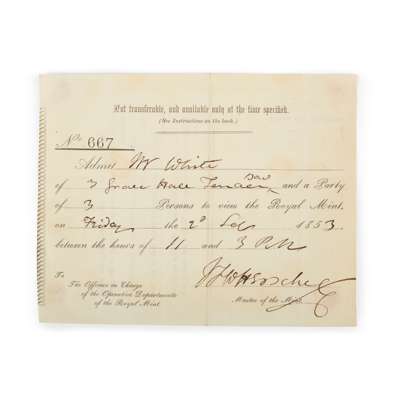 Not transferable, and available only at the time specified.
(See Instructions on the back.)
No 667
Admit Mr White
of 3 Grove Hall and a Party
of 3 Persons to view the Royal Mint,
on Friday the 2d 1853
between the hours of 11 and 3 P.M.
To
The Officer in Charge
of the Operative Departments
of the Royal Mint.
JFWHerschel
Master of the Mint.